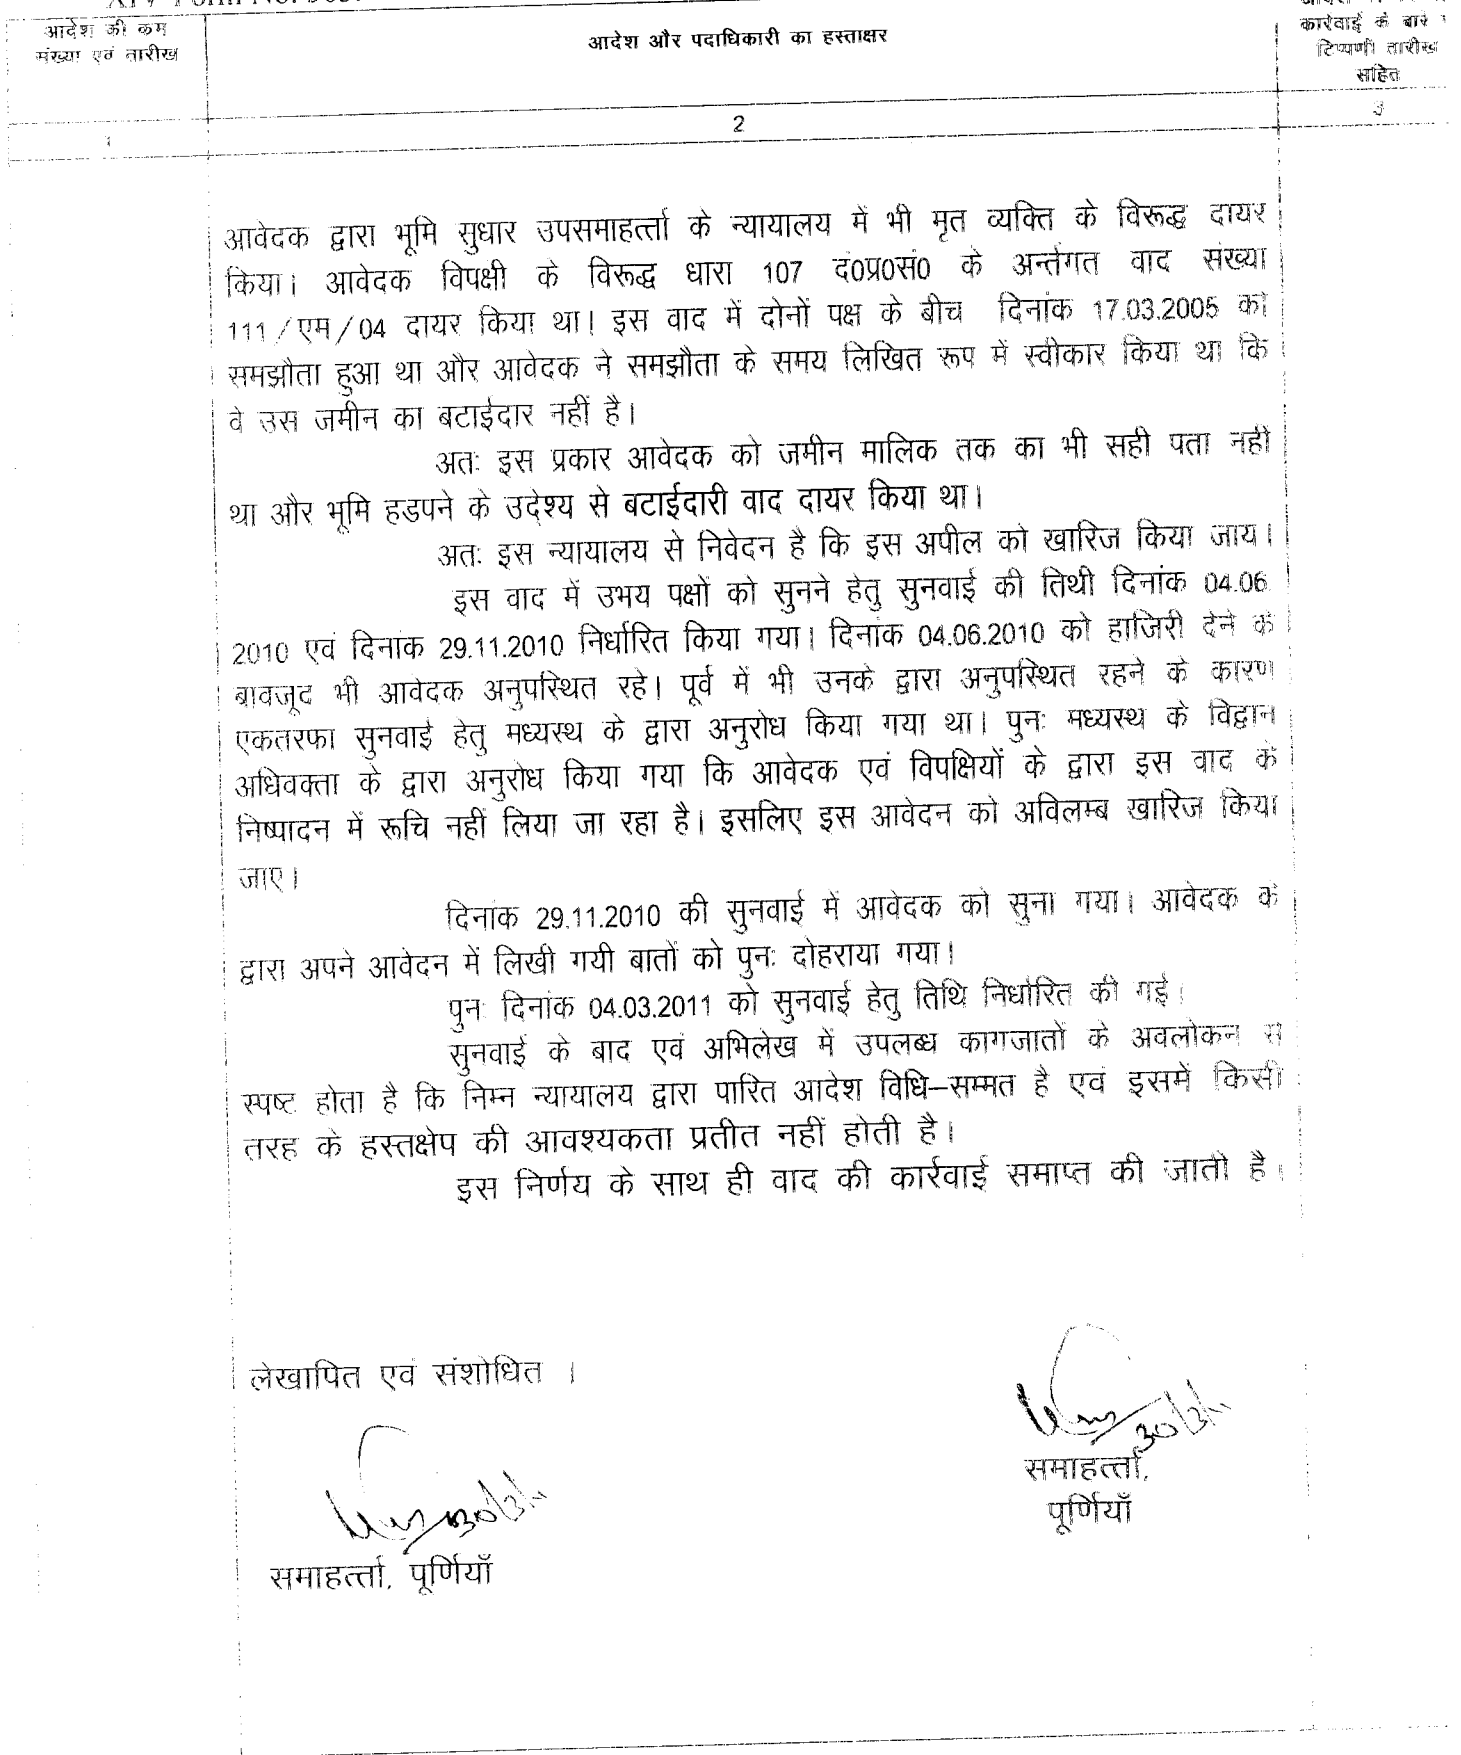 आदेश की कम
संख्या एवं तारीख
आदेश और पदाधिकारी का हस्ताक्षर
कार्रवाई के बारे
टिप्पणी तारीख
सहित
1
2
3
आवेदक द्वारा भूमि सुधार उपसमाहर्त्ता के न्यायालय में भी मृत व्यक्ति के विरूद्ध दायर
किया। आवेदक विपक्षी के विरूद्ध धारा 107 द0प्र0सं0 के अर्न्तगत वाद संख्या
111/एम/04 दायर किया था। इस वाद में दोनों पक्ष के बीच दिनांक 17.03.2005 को
समझौता हुआ था और आवेदक ने समझौता के समय लिखित रूप में स्वीकार किया था कि
वे उस जमीन का बटाईदार नहीं है।
अतः इस प्रकार आवेदक को जमीन मालिक तक का भी सही पता नही
था और भूमि हडपने के उदेश्य से बटाईदारी वाद दायर किया था।
अतः इस न्यायालय से निवेदन है कि इस अपील को खारिज किया जाय।
इस वाद में उभय पक्षों को सुनने हेतु सुनवाई की तिथी दिनांक 04.06
2010 एवं दिनांक 29.11.2010 निर्धारित किया गया। दिनांक 04.06.2010 को हाजिरी देने के
बावजूद भी आवेदक अनुपस्थित रहे। पूर्व में भी उनके द्वारा अनुपस्थित रहने के कारण
एकतरफा सुनवाई हेतु मध्यस्थ के द्वारा अनुरोध किया गया था। पुनः मध्यस्थ के विद्वान
अधिवक्ता के द्वारा अनुरोध किया गया कि आवेदक एवं विपक्षियों के द्वारा इस वाद के
निष्पादन में रूचि नहीं लिया जा रहा है। इसलिए इस आवेदन को अविलम्ब खारिज किया
जाए।
दिनांक 29.11.2010 की सुनवाई में आवेदक को सुना गया। आवेदक के
द्वारा अपने आवेदन में लिखी गयी बातों को पुनः दोहराया गया।
पुनः दिनांक 04.03.2011 को सुनवाई हेतु तिथि निर्धारित की गई।
सुनवाई के बाद एवं अभिलेख में उपलब्ध कागजातों के अवलोकन से
स्पष्ट होता है कि निम्न न्यायालय द्वारा पारित आदेश विधि–सम्मत है एवं इसमें किसी
तरह के हस्तक्षेप की आवश्यकता प्रतीत नहीं होती है।
इस निर्णय के साथ ही वाद की कार्रवाई समाप्त की जाती है।
लेखापित एवं संशोधित ।
समाहर्त्ता,
पूर्णियाँ
समाहर्त्ता, पूर्णियाँ